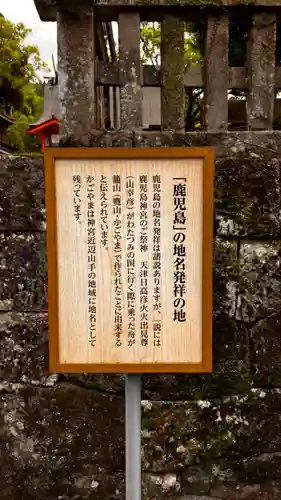 「鹿児島」の地名発祥の地
鹿児島の地名発祥は諸説ありますが、一説には
鹿児島神宮のご祭神　天津日高彦火火出見尊
(山幸彦)がわたつみの国に行く際に乗った舟が
籠山(甑山・かごやま)で作られたことに由来する
と伝えられています。
かごやまは神宮近辺山手の地域に地名として
残っています。